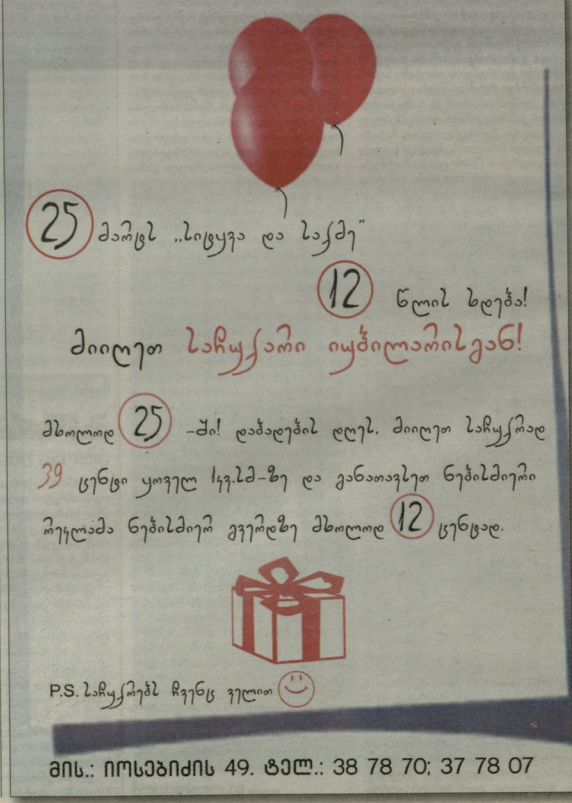 25 მარტს „სიტყვა და საქმე"
12 წლის ხდება!
მიიღეთ საჩუქარი იუბილარისგან!
მხოლოდ 25 -ში! დაბადების დღეს. მიიღეთ საჩუქრად
39 ცენტი ყოველ 1კვ.სმ-ზე და განათავსეთ ნებისმიერი
რეკლამა ნებისმიერ გვერდზე მხოლოდ 12 ცენტად.
P.S. საჩუქრებს ჩვენც ველით
მის.: იოსებიძის 49. ტელ.: 38 78 70; 37 78 07